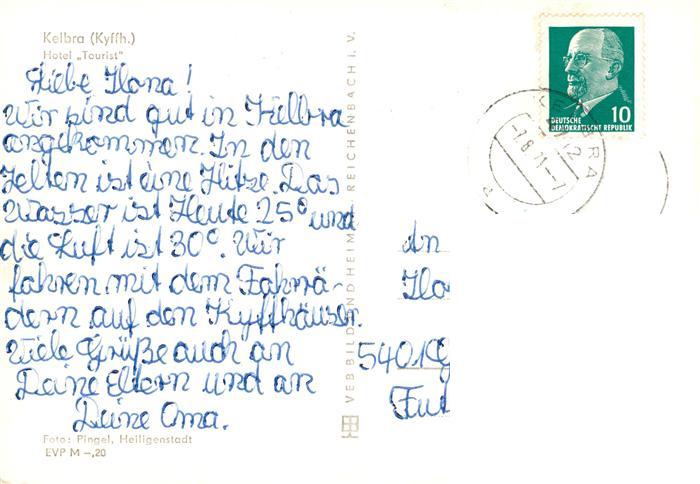 Kelbra (Kyffh.)
Hotel „Tourist"
Liebe Ilona!
Wir sind gut in Kelbra
angekommen. In den
Zelten ist eine Hitze. Das
Wasser ist Heute 25° und
die Luft ist 30°. Wir
fahren mit dem Fahrrä-
dern auf den Kyffhäuser.
Viele Grüße auch an
Deine Eltern und an
Deine Oma.
Foto: Pingel, Heiligenstadt
EVP M –,20
VEB BILD UND HEIM REICHENBACH i. V.
10
DEUTSCHE
DEMOKRATISCHE REPUBLIK
KELBRA
-7.8.71-7
An
Ilo
5401 Kg